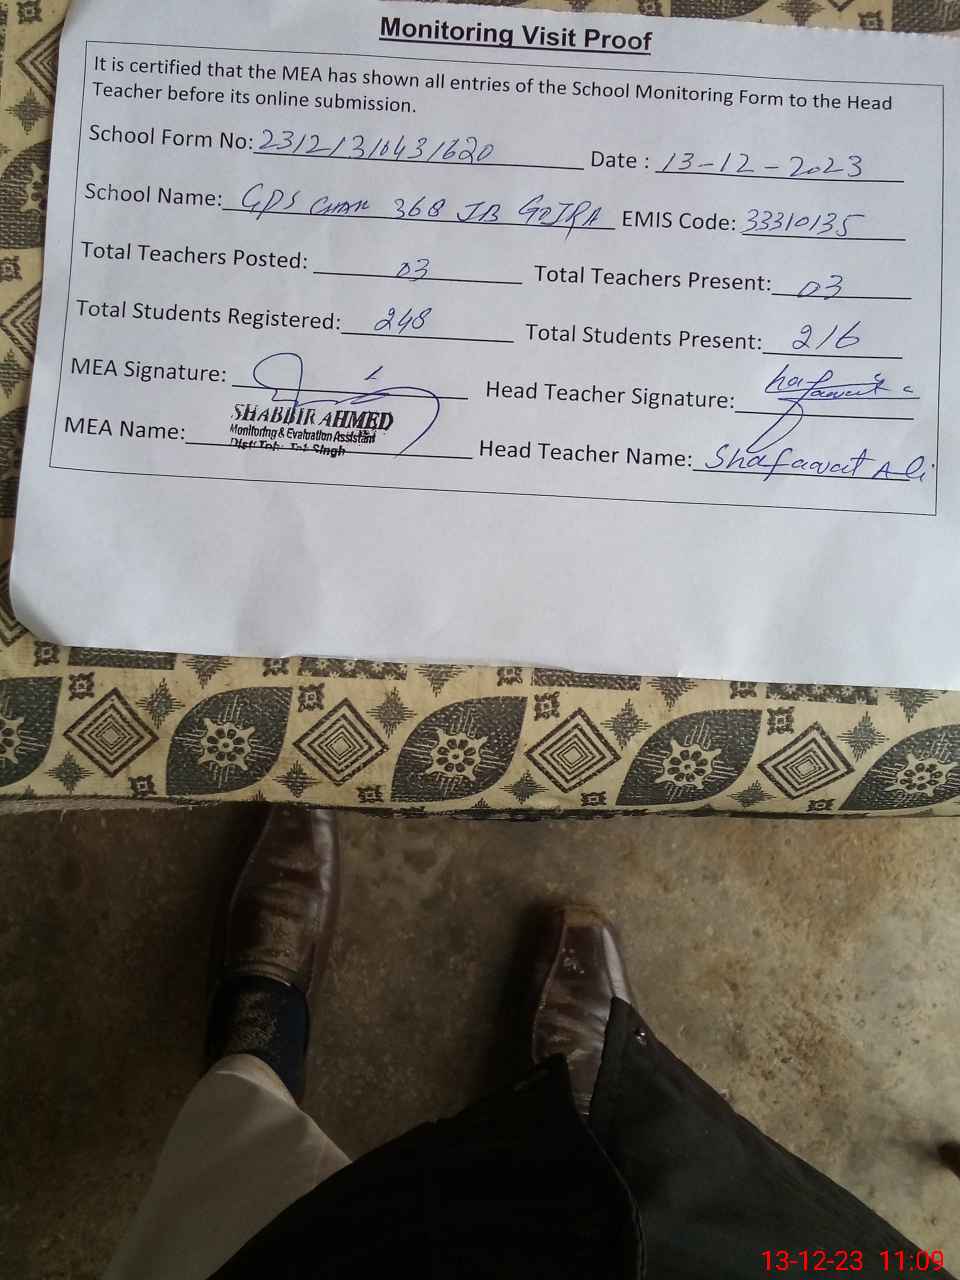 Monitoring Visit Proof
It is certified that the MEA has shown all entries of the School Monitoring Form to the Head
Teacher before its online submission.
School Form No: 231213110431620 Date : 13-12-2023
School Name: GPS CHAK 368 JB GOJRA EMIS Code: 33310135
Total Teachers Posted: 03 Total Teachers Present: 03
Total Students Registered: 248 Total Students Present: 216
MEA Signature: Head Teacher Signature:
SHABBIR AHMED
Monitoring & Evaluation Assistant
Distt Toba Tek Singh
MEA Name: Head Teacher Name: Shafawat Ali
13-12-23 11:09